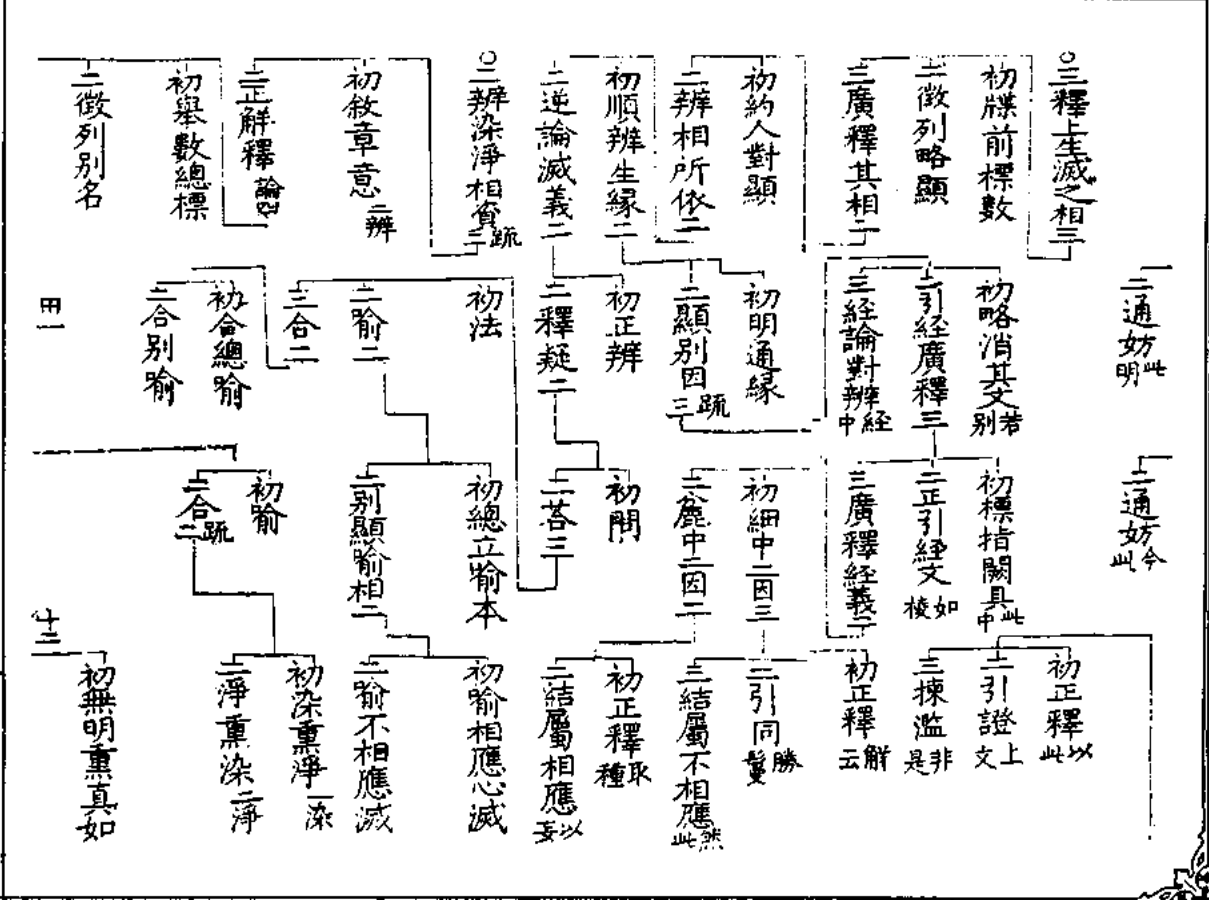 ○三釋上生滅之相三
初牒前標數
二徵列略顯
三廣釋其相二
初約人對顯
二辨相所依二
初順辨生緣二
二逆論滅義二
○二辨染淨相資二疏
初敘章意二辨
二正解釋論四
初舉數總標
二徵列別名
二通妨明此
初略消其文別若
二引經廣釋三
三經論對辨中經
初明通緣
二顯別因三疏
初正辨
二釋疑二
初法
二喻二
三合二
初合總喻
二合別喻
二通妨此今
初標指闕具中此
二正引經文棱如
三廣釋經義二
初細中二因三
二麁中二因二
初問
二荅三
初總立喻本
二別顯喻相二
初喻
二合二疏
初正釋此以
二引證文上
三揀濫是非
初正釋云解
二引同鬘勝
三結屬不相應此然
初正釋種取
二結屬相應妄以
初喻相應心滅
二喻不相應滅
初染熏淨一染
二淨熏染二淨
初無明熏真如